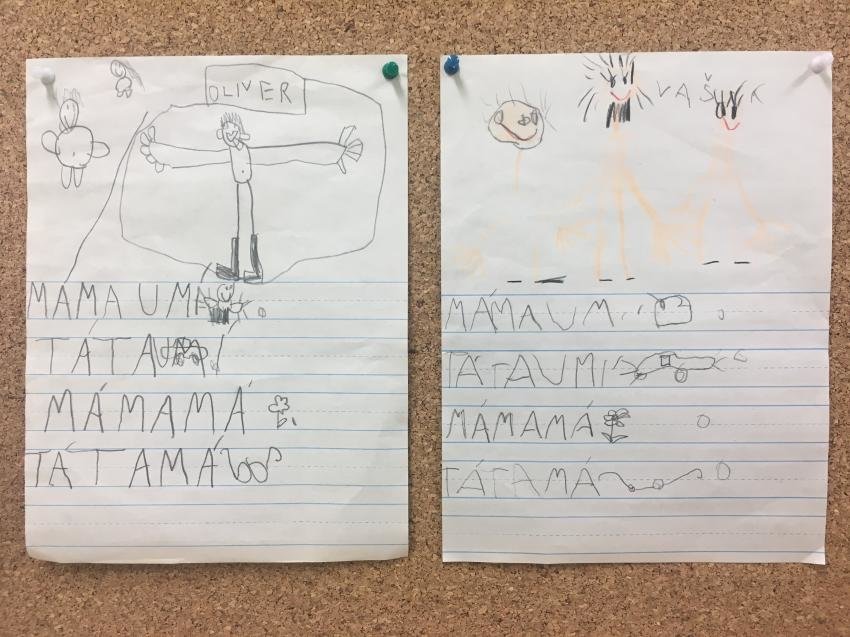 OLIVER
MAMA UMA
TATAUMA
MÁMAMÁ
TÁTAMÁ
VAŠÍK
MÁMAUM
TÁTAUMI
MÁMAMÁ
TÁTAMÁ